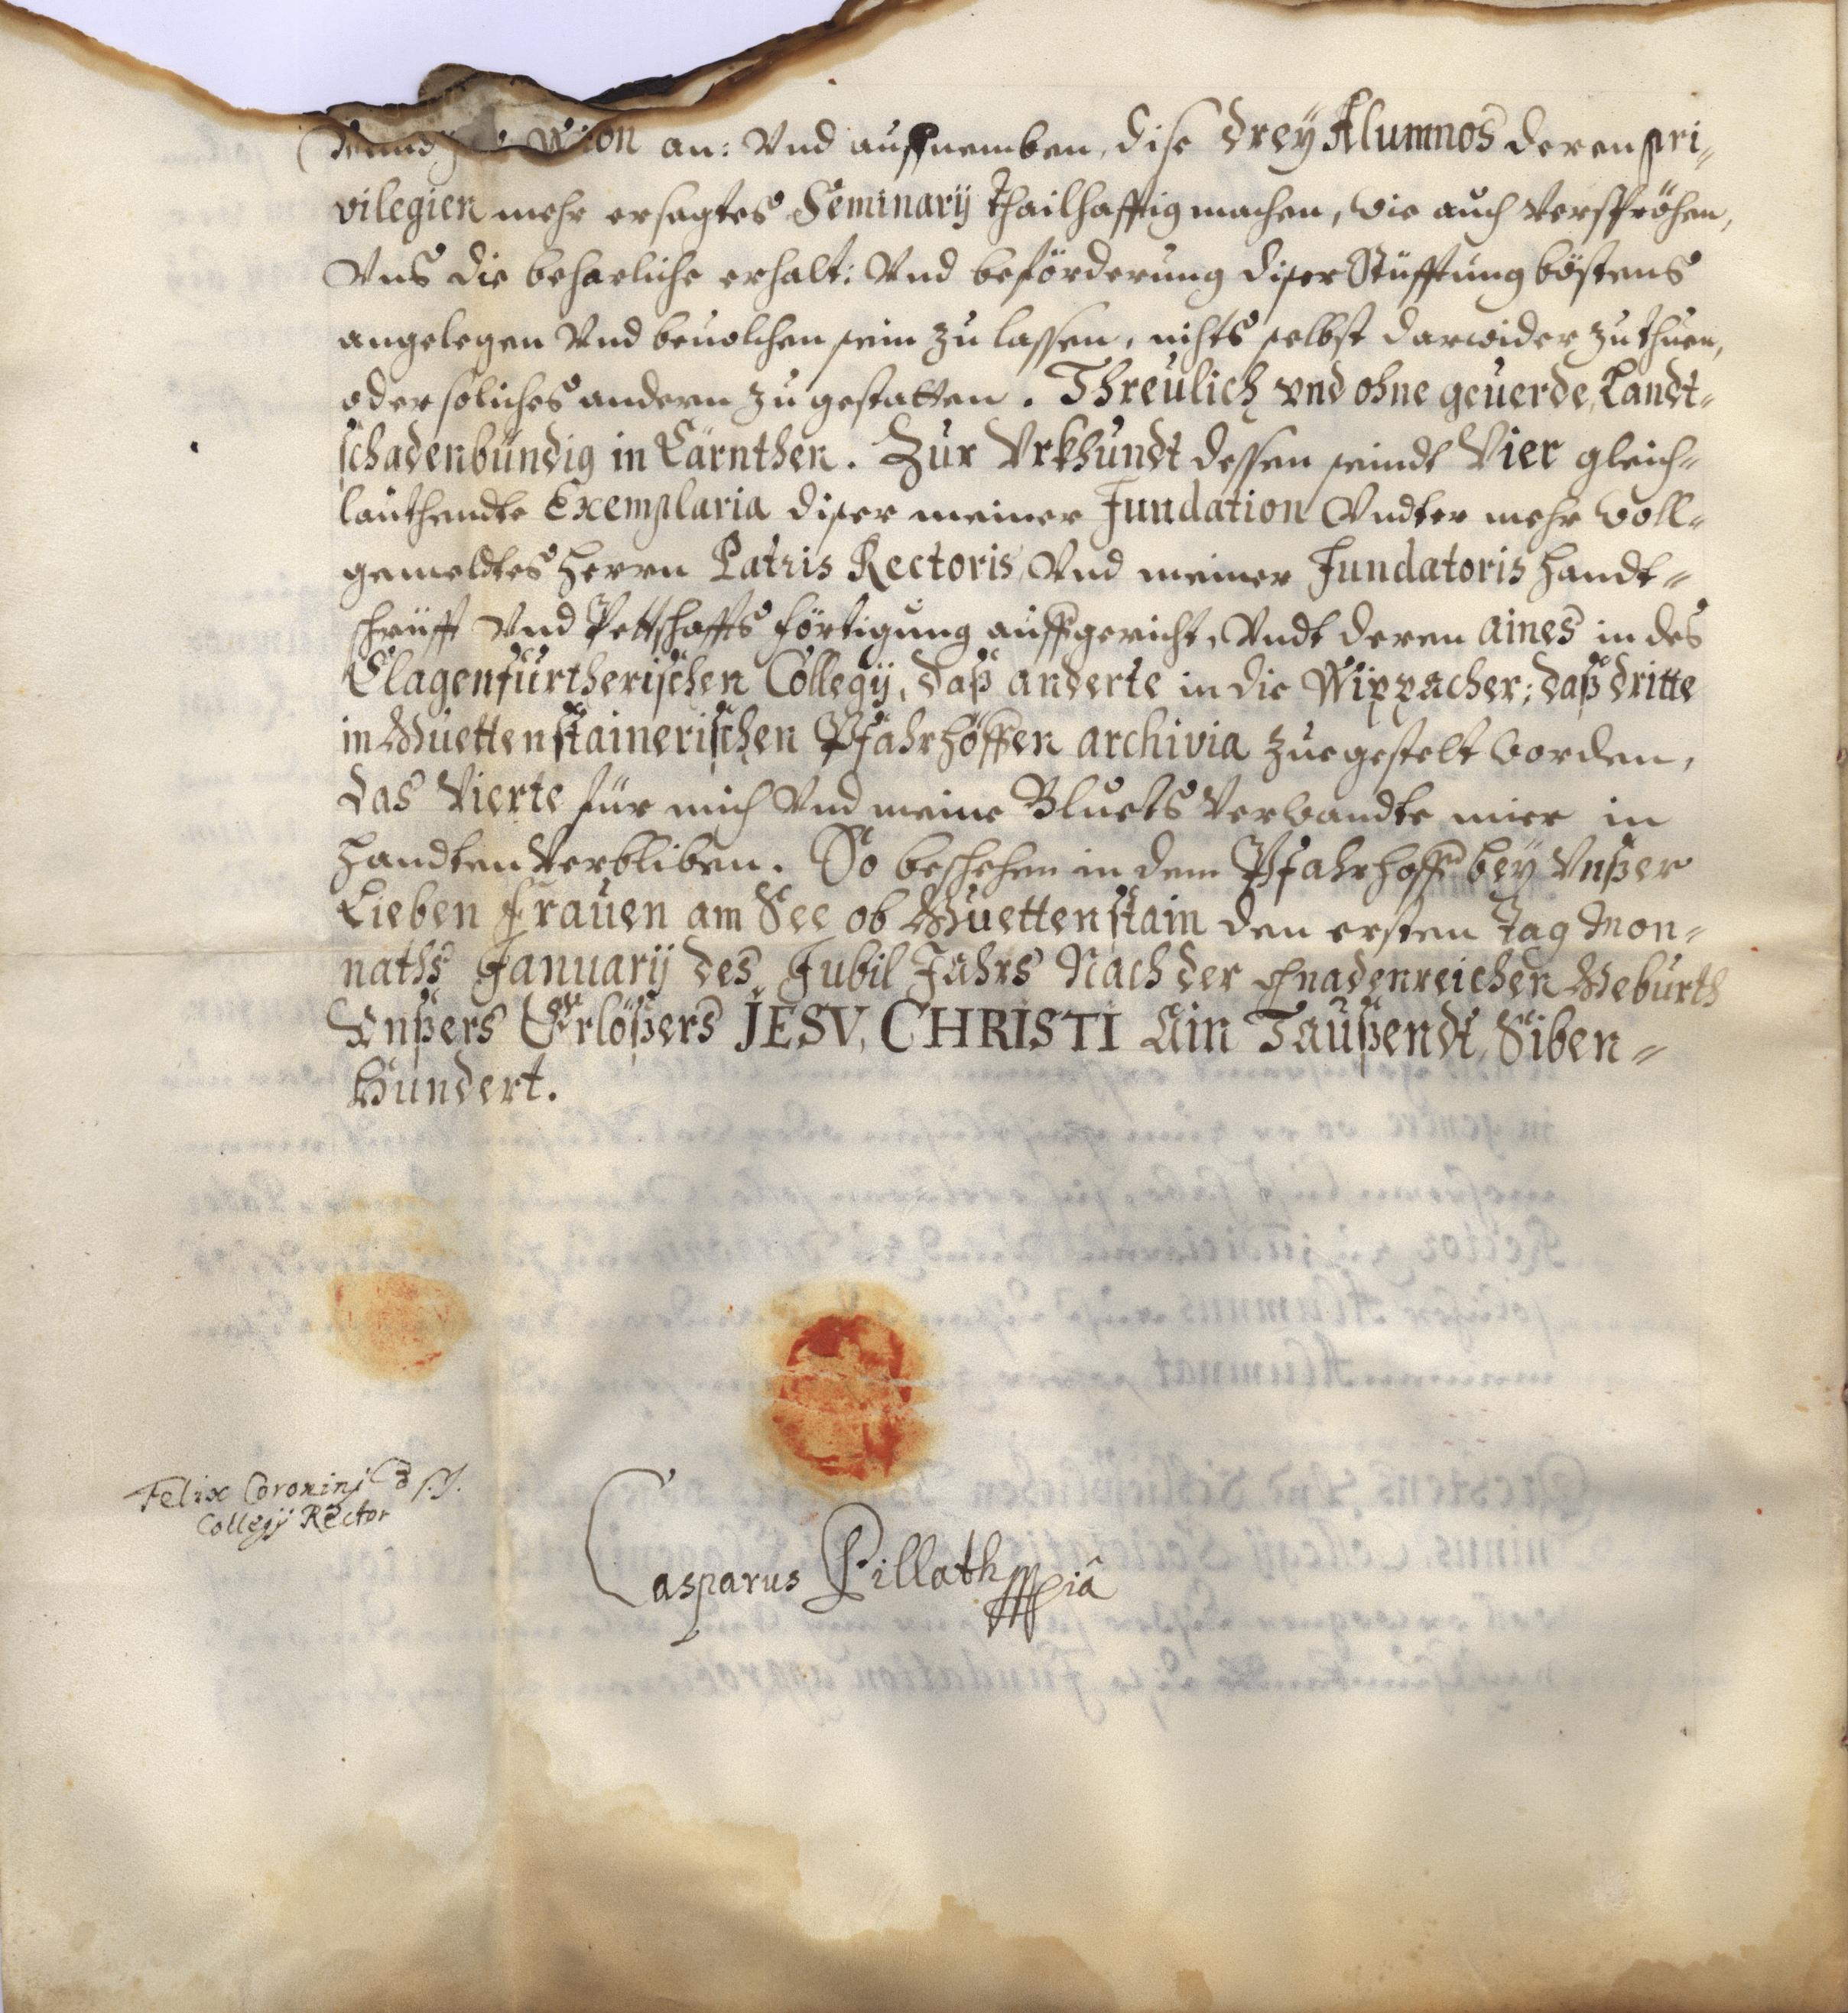 an: Vnd auffnemben, dise drey Alumnos deren pri=
vilegien mehr ersagtes Seminarij thailhafftig machen, wie auch Verspröhen,
Vns die beharliche erhalt: Vnd beförderung diser Stüfftung böstens
angelegen Vnd beuolchen sein zu lassen, nichts selbst darwider zu thuen,
oder soliches andern zu gestatten. Threülich vnd ohne geuerde, Landt=
schadenbündig in Cärnthen. Zur Vrkhundt dessen seindt Vier gleich=
lauthendte Exemplaria diser meiner Fundation Vndter mehr woll=
gemeldtes Herrn Patris Rectoris, Vnd meiner Fundatoris Handt=
schrüfft Vnd Pettschaffts förtigung auffgericht, Vndt deren aines in des
Clagenfürtherischen Collegij, daß anderte in die Wippacher: daß dritte
in Guettenstainerischen Pfahrhöffen archivia zuegestelt worden,
das Vierte für mich Vnd meine Bluets Verwandte mier in
Handten Verbliben. So beschehen in dem Pfahrhoff bey Vnßer
Lieben Frauen am See ob Guettenstain den ersten Tag Mon=
naths Januarij des Jubil Jahrs Nach der Gnadenreichen Geburth
Vnßers Erlößers JESV, CHRISTI Ain Taußendt, Siben=
Hundert.
Felix Coronini S.J.
Collegij Rector
Casparus Pillath